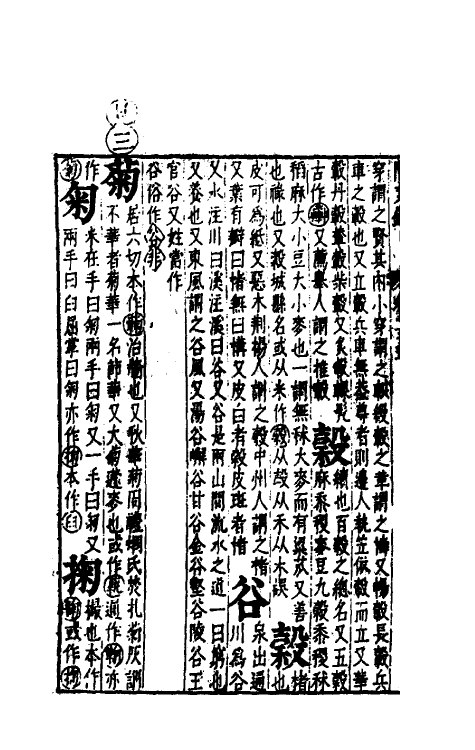 穿謂之賢其內小穿謂之軹綬轂之韋謂之幬又暢轂長轂兵
車之轂也又立轂兵車無蓋尊者則邊人執笠依轂而立又華
轂丹轂鼖轂柴轂又炙轂 穀 續也百穀之總名又五穀
古作 又薦舉人謂之推轂 麻黍稷麥豆九穀黍稷秫
稻麻大小豆大小麥也一謂無秫大麥而有粱苽又善
也祿也又穀城縣名或从米作 从㱿从禾从木誤 榖 楮也
皮可為紙又惡木荆楊人謂之榖中州人謂之楮
又葉有瓣曰楮無曰構又皮白者榖皮斑者楮 谷 泉出通川為谷
又水注川曰溪注溪曰谷又谷是兩山間流水之道一曰窮也
又養也又東風謂之谷風又暘谷嶰谷甘谷金谷壑谷陵谷王
官谷又姓當作
谷俗作 非
三
菊 居六切本作 治牆也又秋華菊周禮蟈氏焚牡菊灰謂
不華者菊華一名節華又大菊蘧麥也或作 通作 亦
作 匊 米在手曰匊兩手曰匊又一手曰匊又
兩手曰臼屈掌曰匊亦作 本作 掬 撮也本作
或作